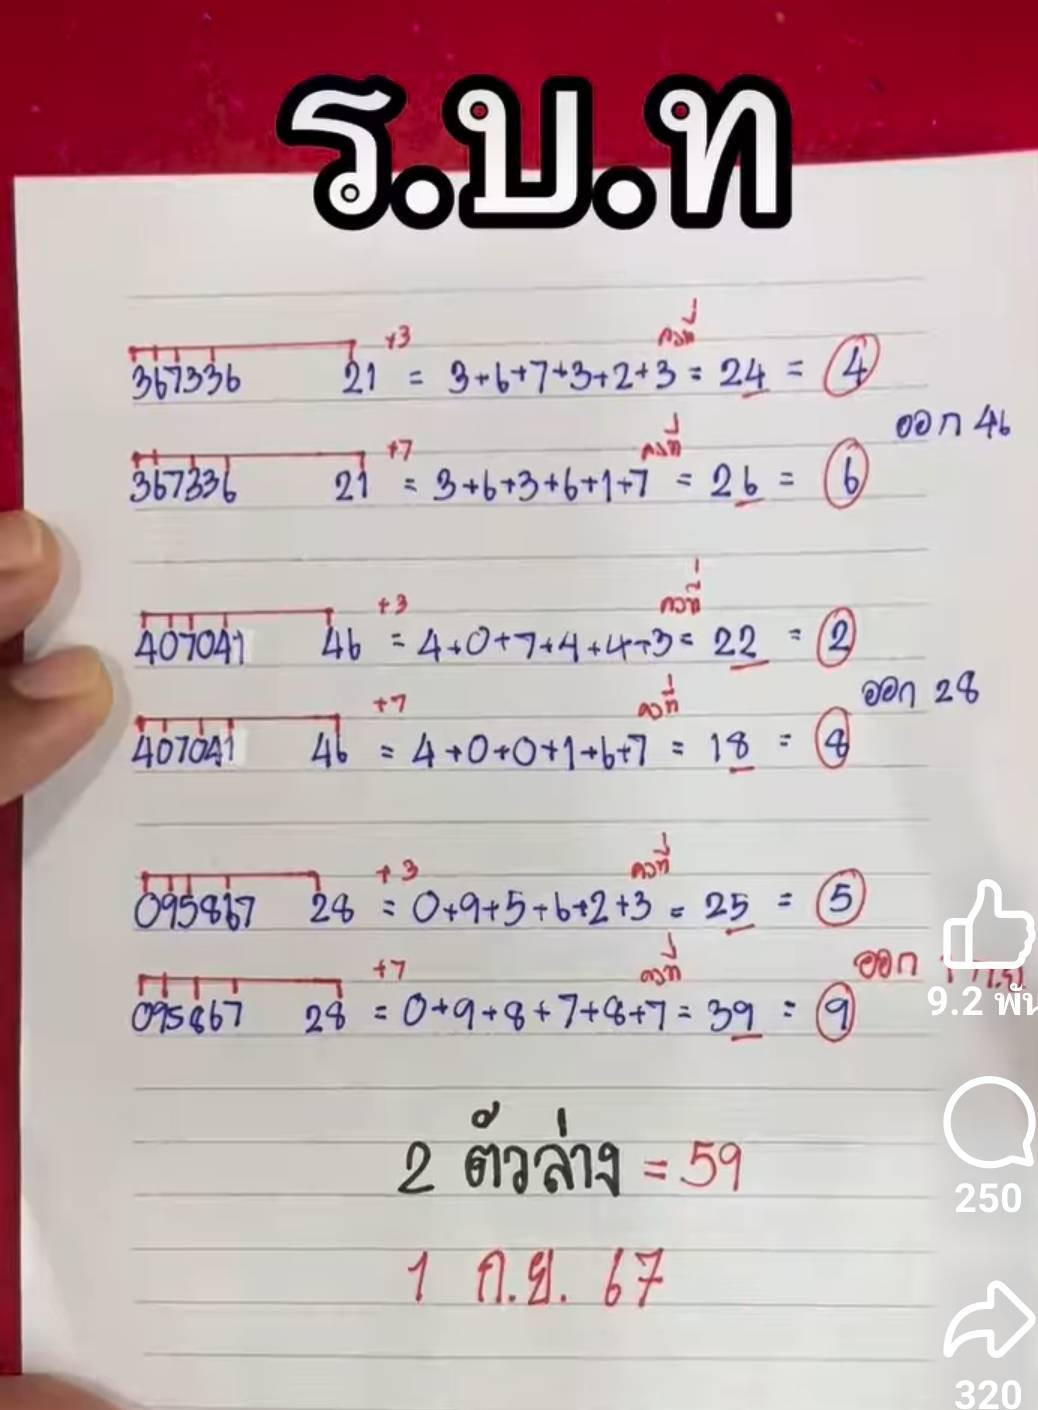 ร.บ.ท
+3 คงที่
367336 21 = 3+6+7+3+2+3 = 24 = 4
ออก 46
+7 คงที่
367336 21 = 3+6+3+6+1+7 = 26 = 6
+3 คงที่
407041 46 = 4+0+7+4+4+3 = 22 = 2
ออก 28
+7 คงที่
407041 46 = 4+0+0+1+6+7 = 18 = 8
+3 คงที่
095867 28 = 0+9+5+6+2+3 = 25 = 5
ออก 1 ก.ย
+7 คงที่
095867 28 = 0+9+8+7+8+7 = 39 = 9
9.2 พัน
2 ตัวล่าง = 59
250
1 ก.ย. 67
320